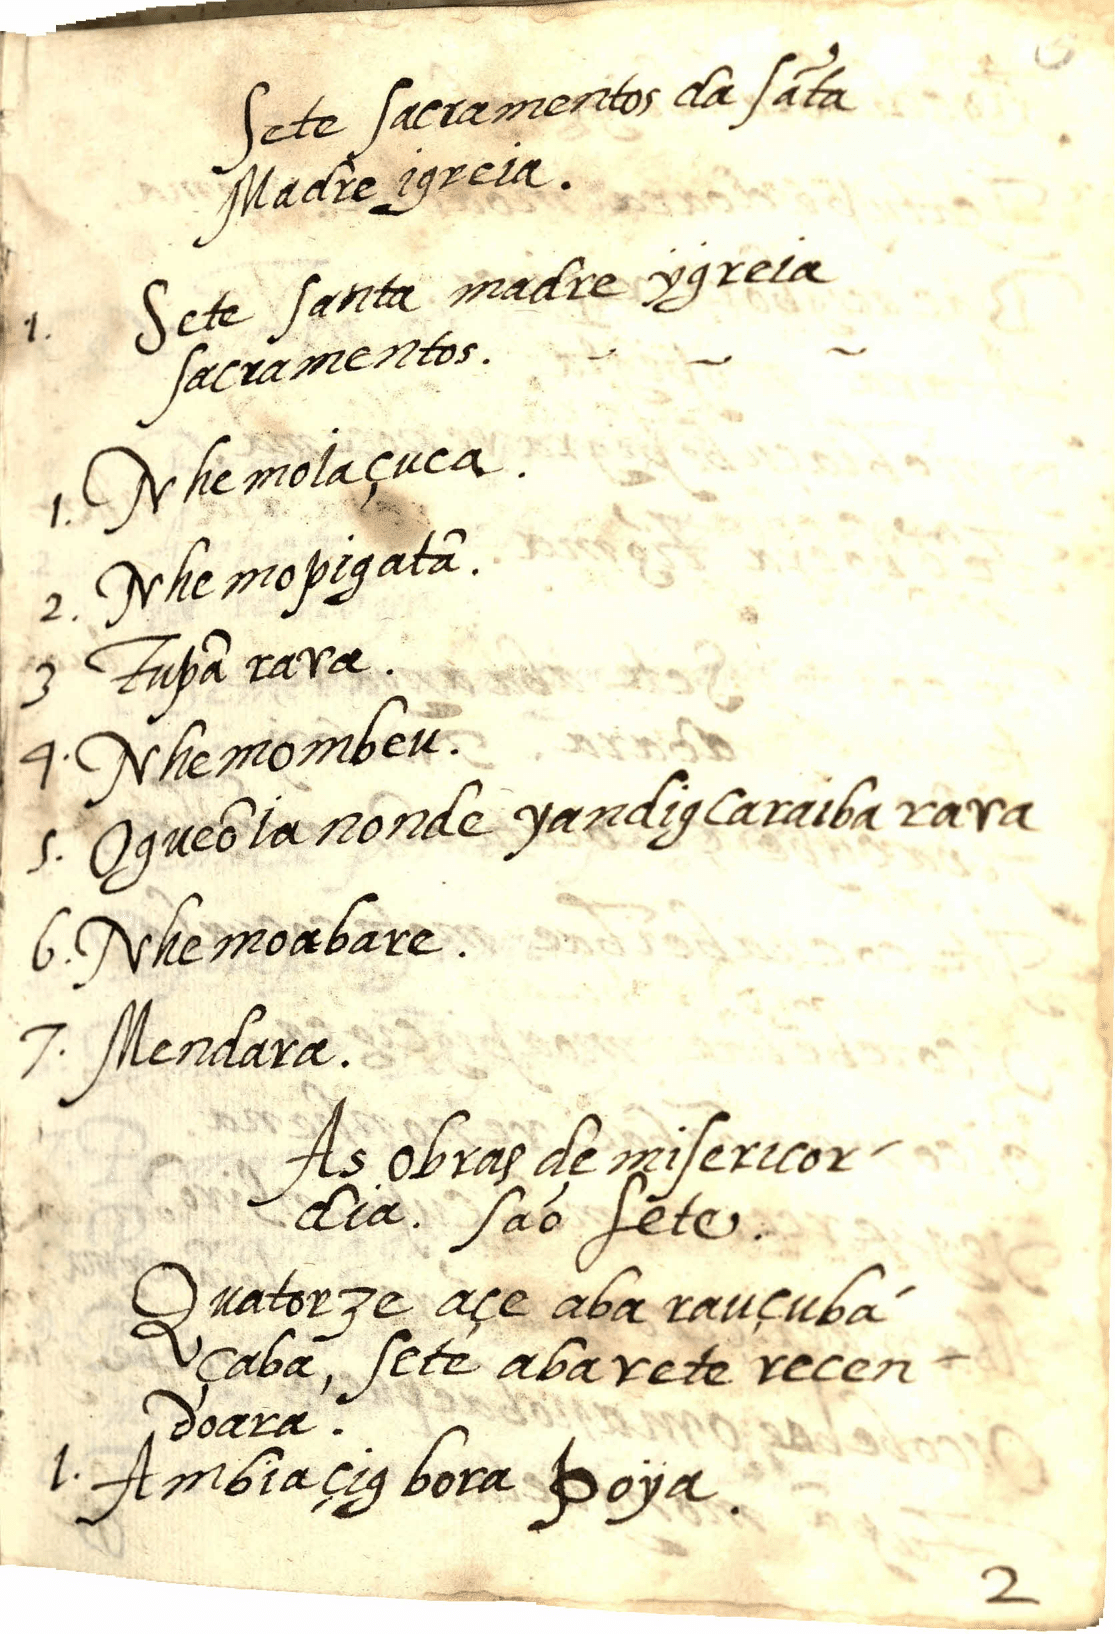 Sete sacramentos da sãta
Madre igreia.
1. Sete santa madre ÿgreia
sacramentos. - ~ ~
1. Nhemoiaçuca.
2. Nhemopigatã.
3 Tupã rara.
4. Nhemombeu.
5. Ogueõ ia nonde yandigcaraiba rara
6. Nhemoabare.
7. Mendara.
As obras de misericor-
dia. saõ sete.
Quatorze açe aba rauçubá-
çaba, sete aba rete recen-
doara.
1. Ambiaçig bora poÿa.
2